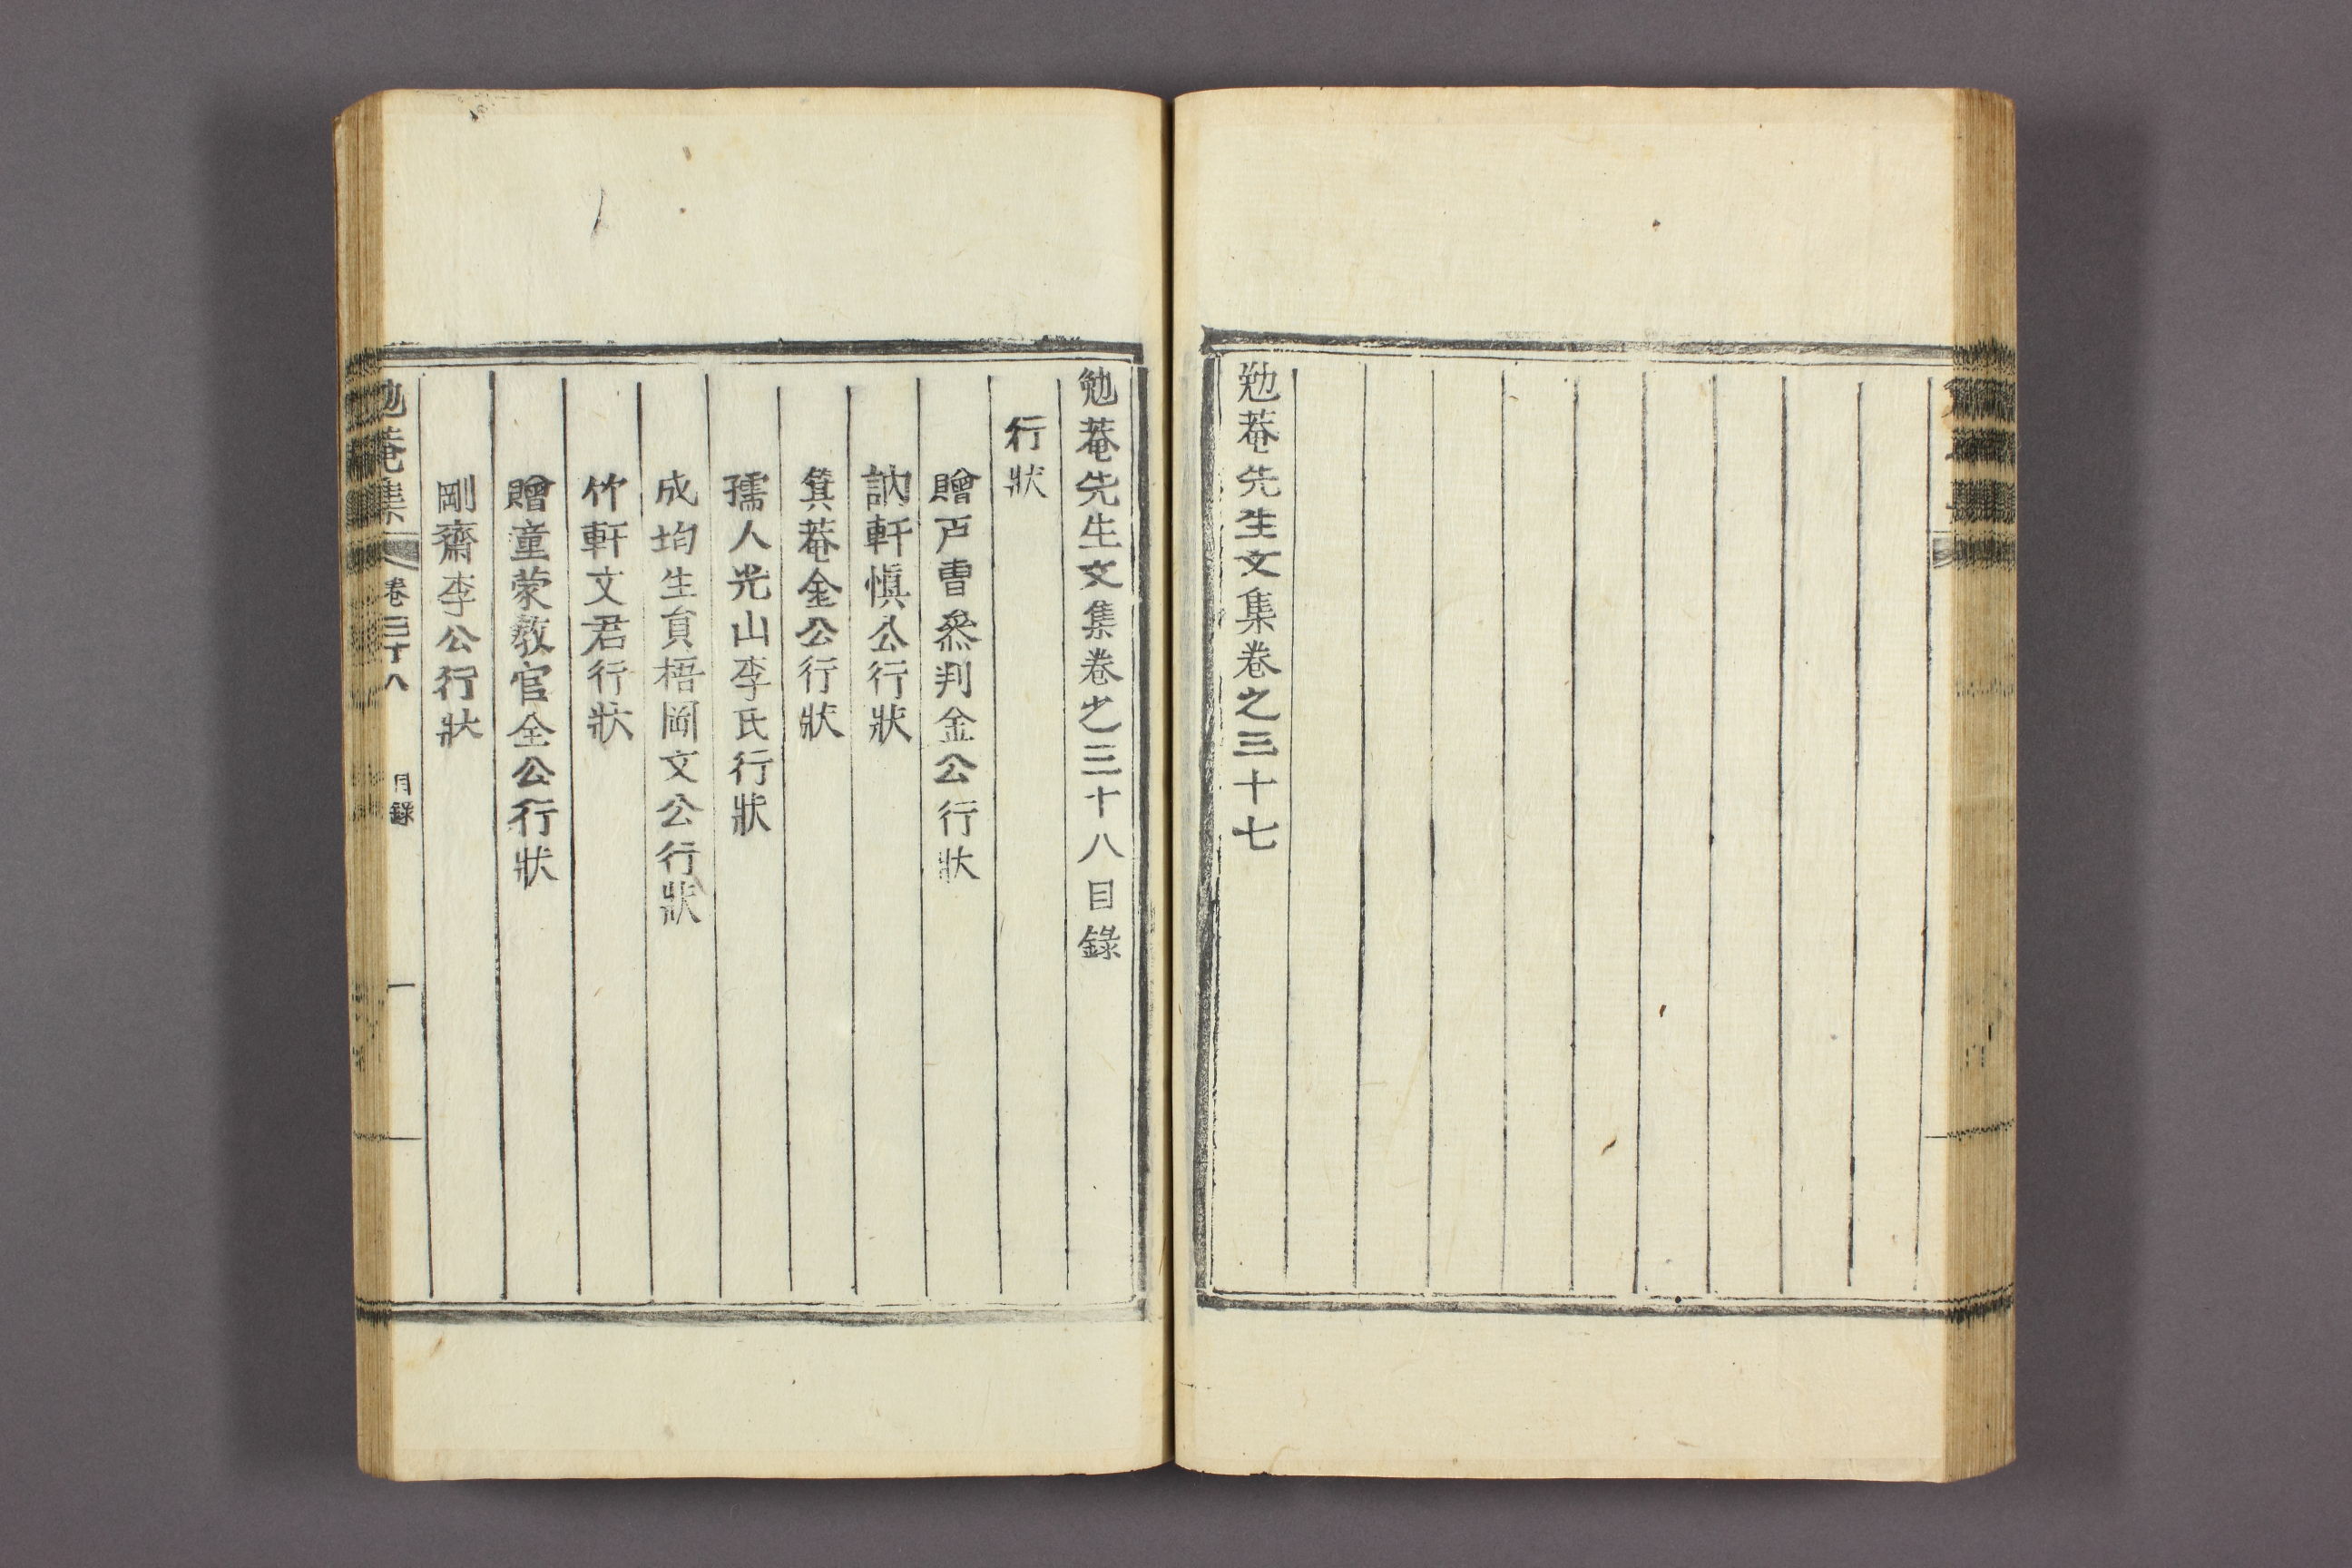 勉菴先生文集卷之三十七
勉菴先生文集卷之三十八目錄
行狀
贈戶曹叅判金公行狀
訥軒愼公行狀
箕菴金公行狀
孺人光山李氏行狀
成均生員梧岡文公行狀
竹軒文君行狀
贈童蒙敎官全公行狀
剛齋李公行狀
勉菴集 卷三十八 目錄 一